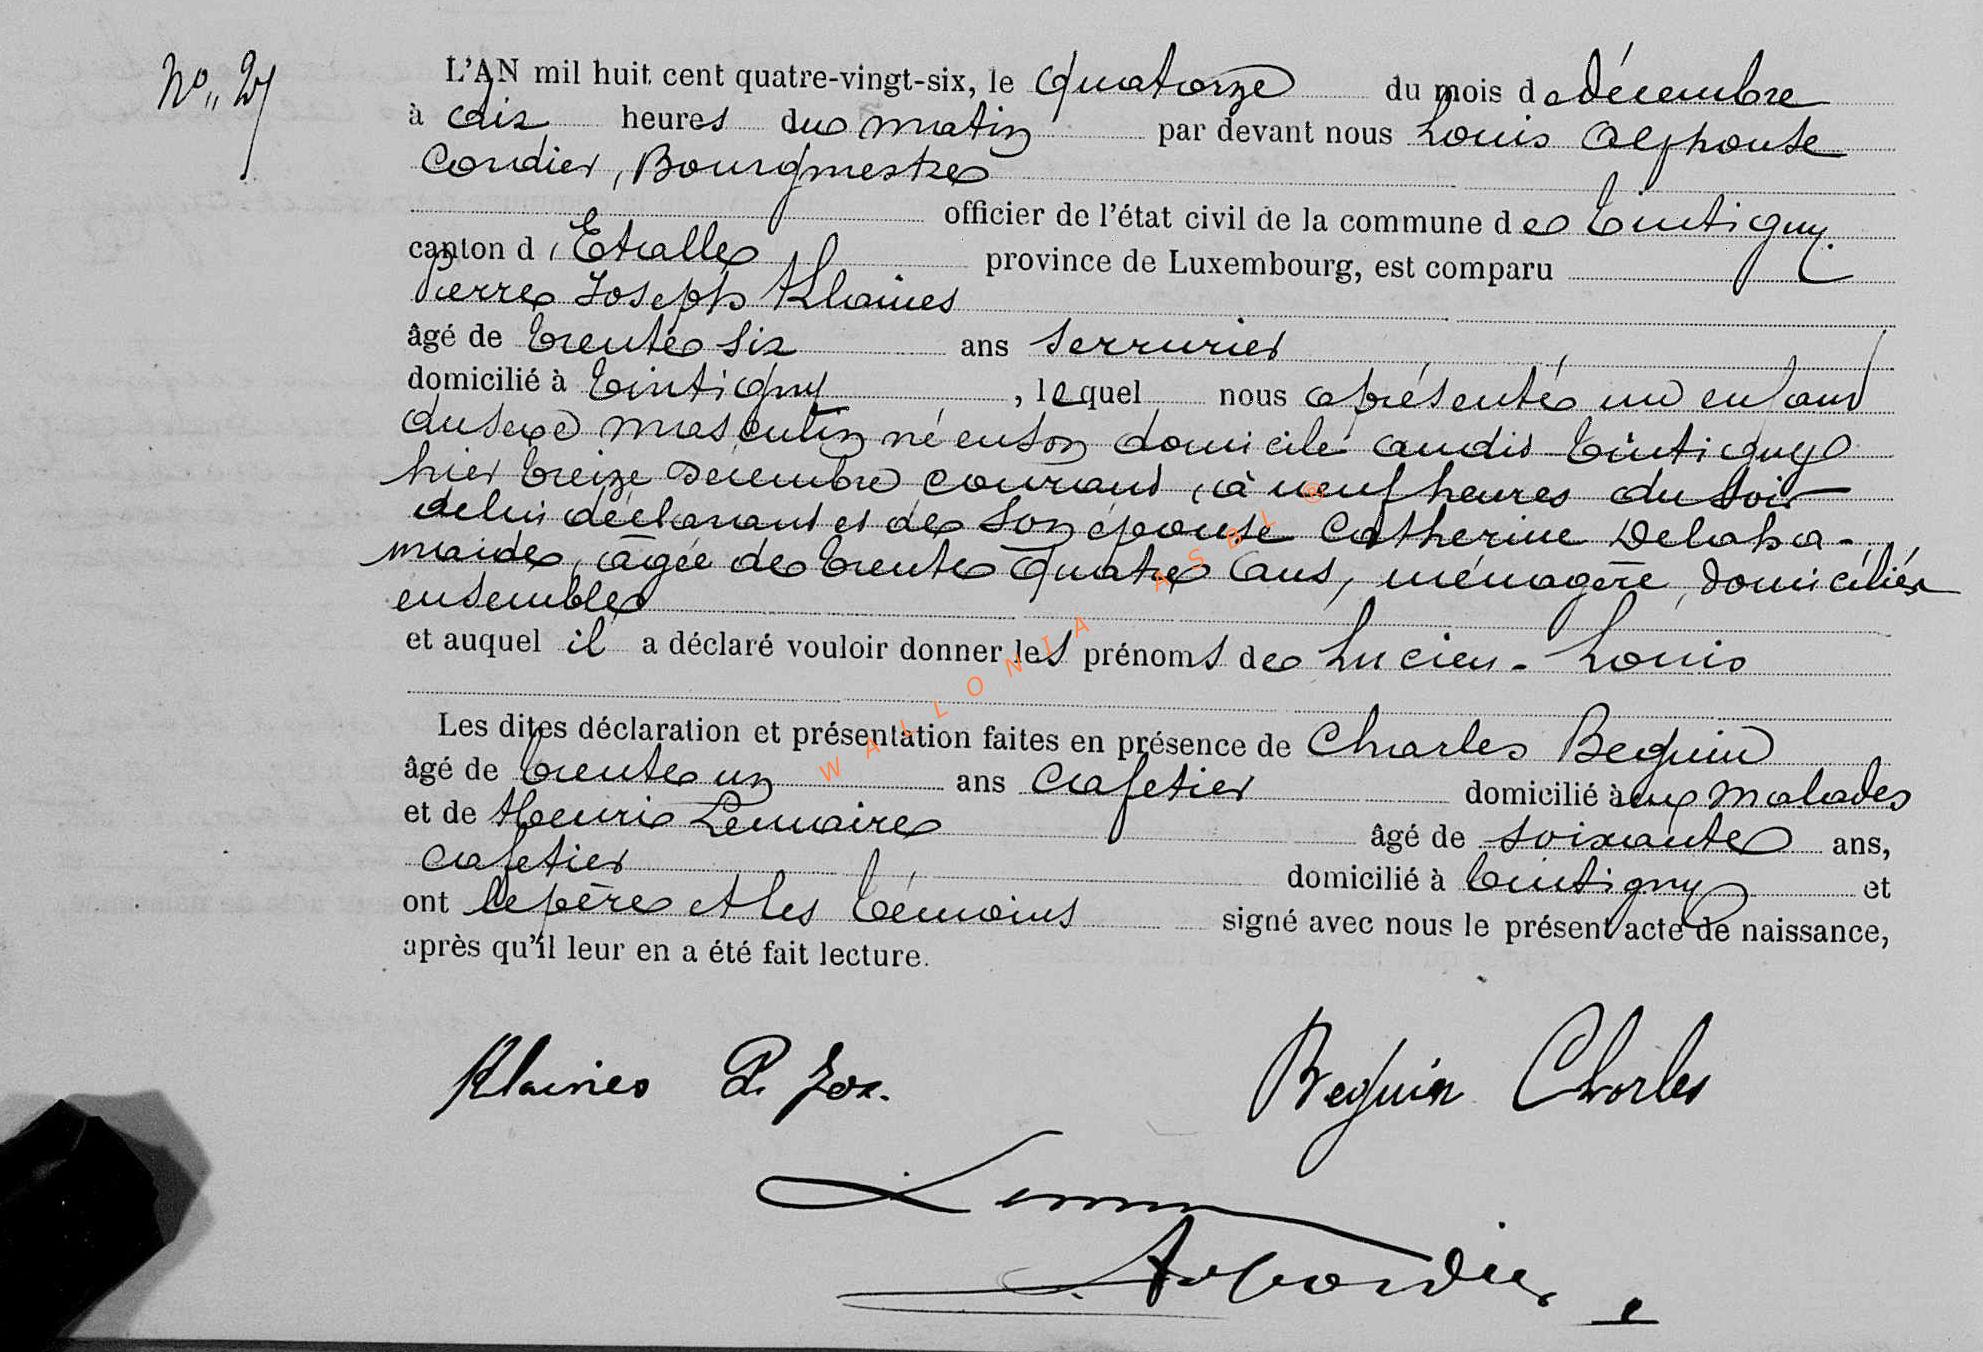 No. 27
L'AN mil huit cent quatre-vingt-six, le quatorze du mois de décembre
à dix heures du matin par devant nous Louis Alphonse
Cordier, Bourgmestre
officier de l'état civil de la commune de Tintigny.
canton d'Etalle province de Luxembourg, est comparu
Pierre Joseph Klaines
âgé de trente six ans serrurier
domicilié à Tintigny, lequel nous a présenté un enfant
du sexe masculin né en son domicile audit Tintigny
hier treize décembre courant, à neuf heures du soir
de lui déclarant et de son épouse Catherine Delaha-
maide, âgée de trente quatre ans, ménagère, domiciliés
ensemble
et auquel il a déclaré vouloir donner les prénoms de Lucien-Louis
Les dites déclaration et présentation faites en présence de Charles Bequin
âgé de trente un ans cafetier domicilié aux Malades
et de Henri Lemaire âgé de soixante ans,
cafetier domicilié à Tintigny et
ont le père et les témoins signé avec nous le présent acte de naissance,
après qu'il leur en a été fait lecture.
Klaines P. Jos. Bequin Charles
WALLONIA ASBL ®